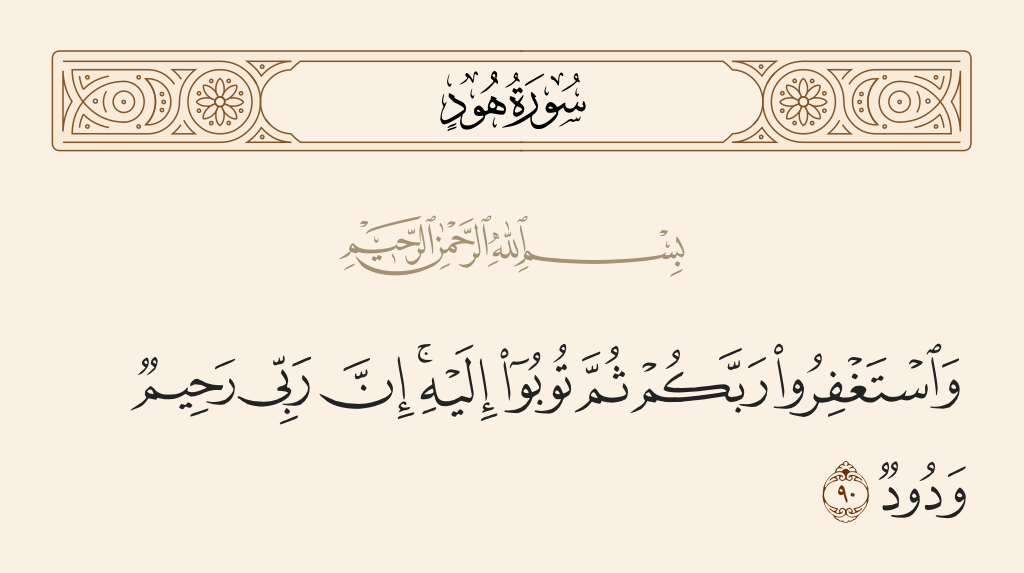 سُورَةُ هُودٍ
بِسْمِ ٱللَّهِ ٱلرَّحْمَٰنِ ٱلرَّحِيمِ
وَٱسْتَغْفِرُوا۟ رَبَّكُمْ ثُمَّ تُوبُوٓا۟ إِلَيْهِ ۚ إِنَّ رَبِّى رَحِيمٌ
وَدُودٌ ٩٠